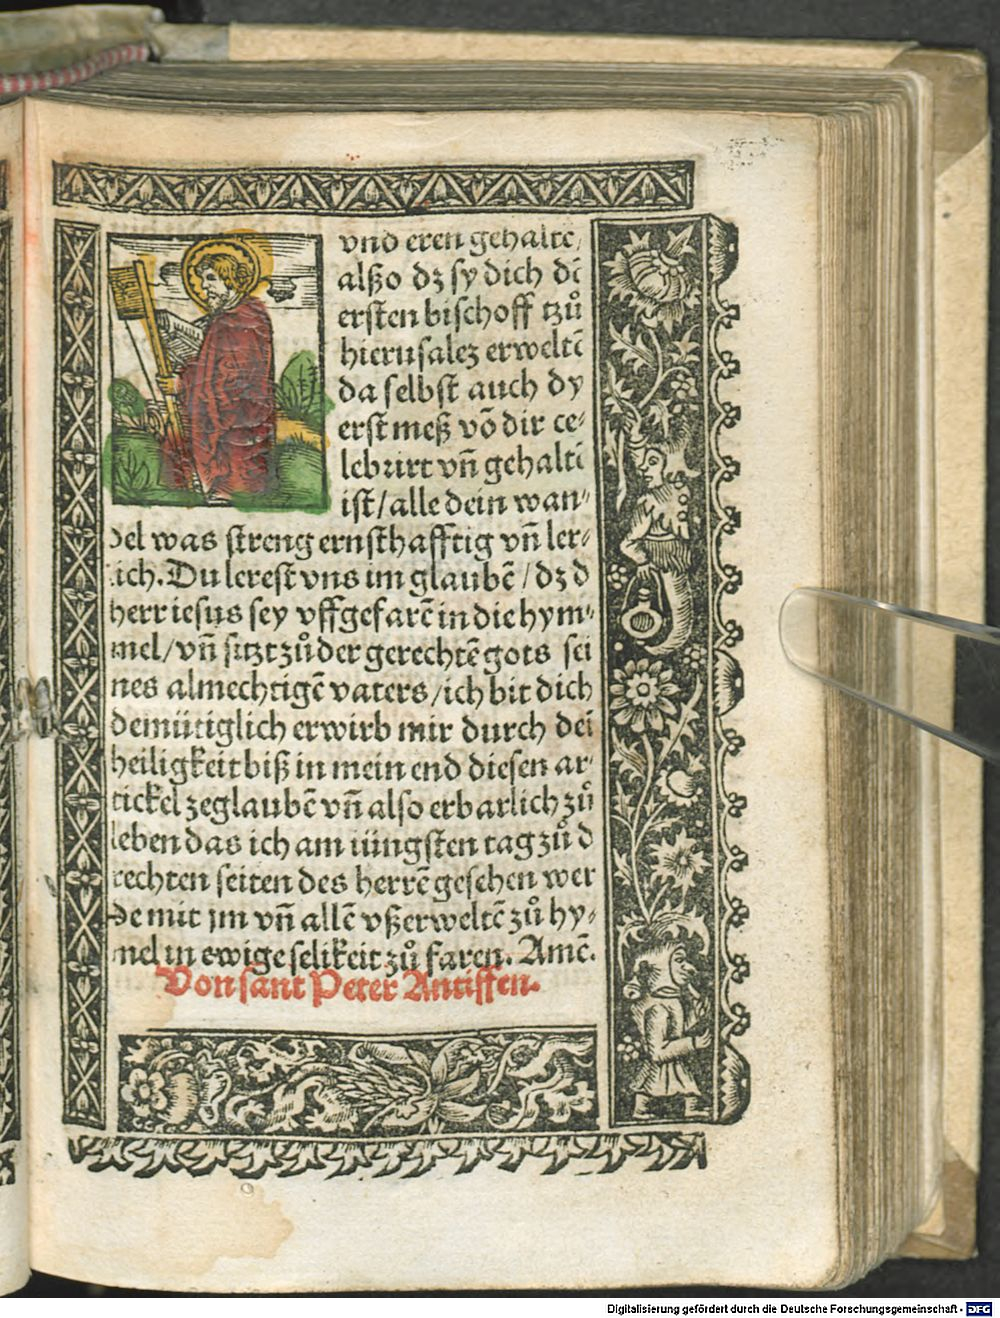 vnd eren gehalte,
alßo dz sy dich dē
ersten bischoff tzů
hierusalez erweltē
da selbst auch dy
erst meß vō dir ce⸗
lebrirt vn̄ gehaltē
ist/alle dein wan⸗
del was streng ernsthafftig vn̄ ler⸗
lich. Du lerest vns im glaubē/dz d
herr iesus sey vffgefarē in die hym⸗
mel/vn̄ sitzt zů der gerechtē gots sei
nes almechtigē vaters/ich bit dich
demütiglich erwirb mir durch dei
heiligkeit biß in mein end diesen ar⸗
tickel zeglaubē vn̄ also erbarlich zů
leben das ich am iüngsten tag zů d
rechten seiten des herrē gesehen wer
de mit jm vn̄ allē vßerweltē zů hy⸗
mel in ewige selikeit zů faren. Amē.
Von sant Peter Antiffen.
Digitalisierung gefördert durch die Deutsche Forschungsgemeinschaft - DFG